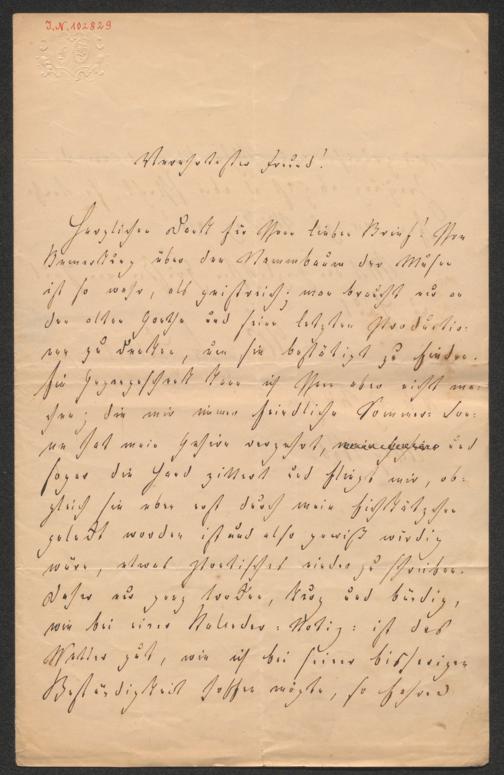 I.N. 102829
Verehrtester Freund!
Herzlichen Dank für Ihren lieben Brief! Ihre
Bemerkung über den Stammbaum der Muse
ist so wahr, als geistreich; man braucht nur an
den alten Goethe und seine letzten Productio-
nen zu denken, um sie bestätigt zu finden.
Ein Gegengeschenk kann ich Ihnen aber nicht ma-
chen; die mir immer feindliche Sommer-Son-
ne hat mein Gehirn verzehrt, und
sogar die Hand zittert und fliegt mir, ob-
gleich sie aber erst durch mein Eichkätzchen
geleckt worden ist und also gewiß würdig
wäre, etwas Poetisches nieder zu schreiben.
Daher nur ganz trocken, kurz und bündig,
wie bei einer Kalender-Notiz: ist das
Wetter gut, wie ich bei seiner bisherigen
Beständigkeit hoffen mögte, so fahren